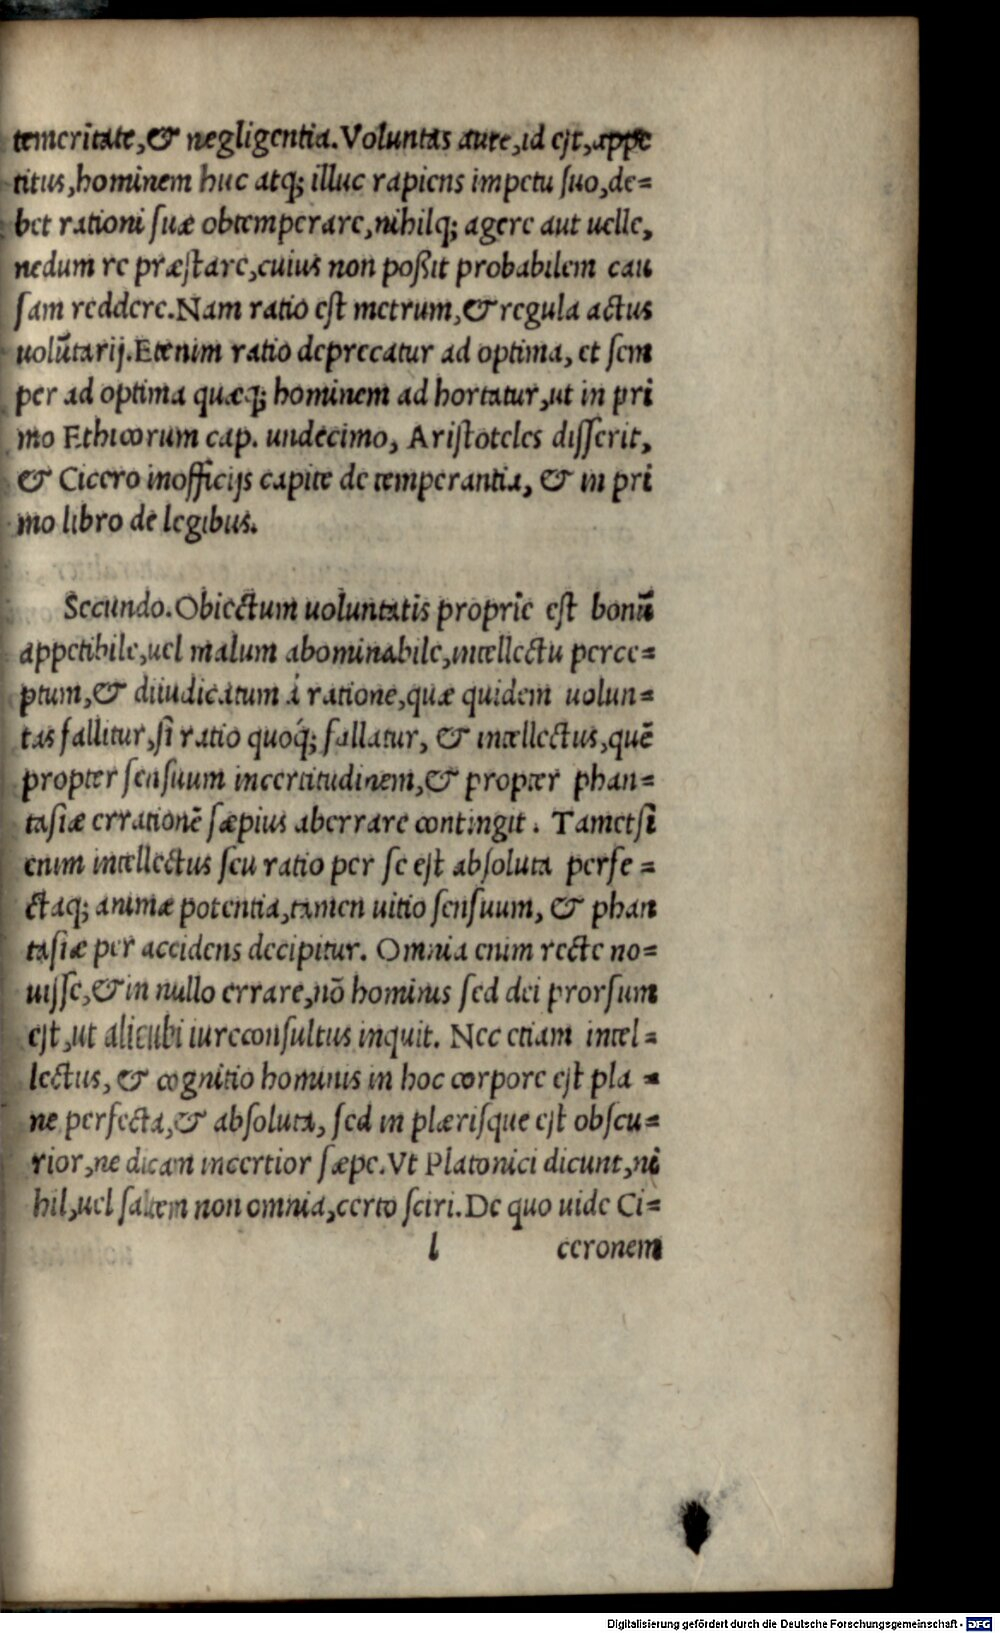 temeritate,& negligentia.Voluntas aute,id est,appe
titus,hominem huc atq; illuc rapiens impetu suo,de=
bet rationi suæ obtemperare,nihilq; agere aut uelle,
nedum re præstare,cuius non poßit probabilem cau
sam reddere.Nam ratio est metrum,& regula actus
uolūtarij.Etenim ratio deprecatur ad optima, et sem
per ad optima quæq; hominem ad hortatur,ut in pri
mo Ethicorum cap. undecimo, Aristoteles disserit,
& Cicero inofficijs capite de temperantia, & in pri
mo libro de legibus.
Secundo.Obiectum uoluntatis proprie est bonū
appetibile,uel malum abominabile,intellectu perce=
ptum,& diiudicatum à ratione,quæ quidem uolun=
tas fallitur,si ratio quoq́; fallatur, & intellectus,quē
propter sensuum incertitudinem,& propter phan=
tasiæ errationē sæpius aberrare contingit. Tametsi
enim intellectus seu ratio per se est absoluta perfe=
ctaq; animæ potentia,tamen uitio sensuum, & phan
tasiæ per accidens decipitur. Omnia enim recte no=
uisse,& in nullo errare,nō hominis sed dei prorsum
est,ut alicubi iureconsultus inquit. Nec etiam intel=
lectus, & cognitio hominis in hoc corpore est pla=
ne perfecta,& absoluta, sed in plærisque est obscu=
rior,ne dicam incertior sæpe.Vt Platonici dicunt,ni
hil,uel saltem non omnia,certo sciri.De quo uide Ci=
l ceronem
Digitalisierung gefördert durch die Deutsche Forschungsgemeinschaft - DFG